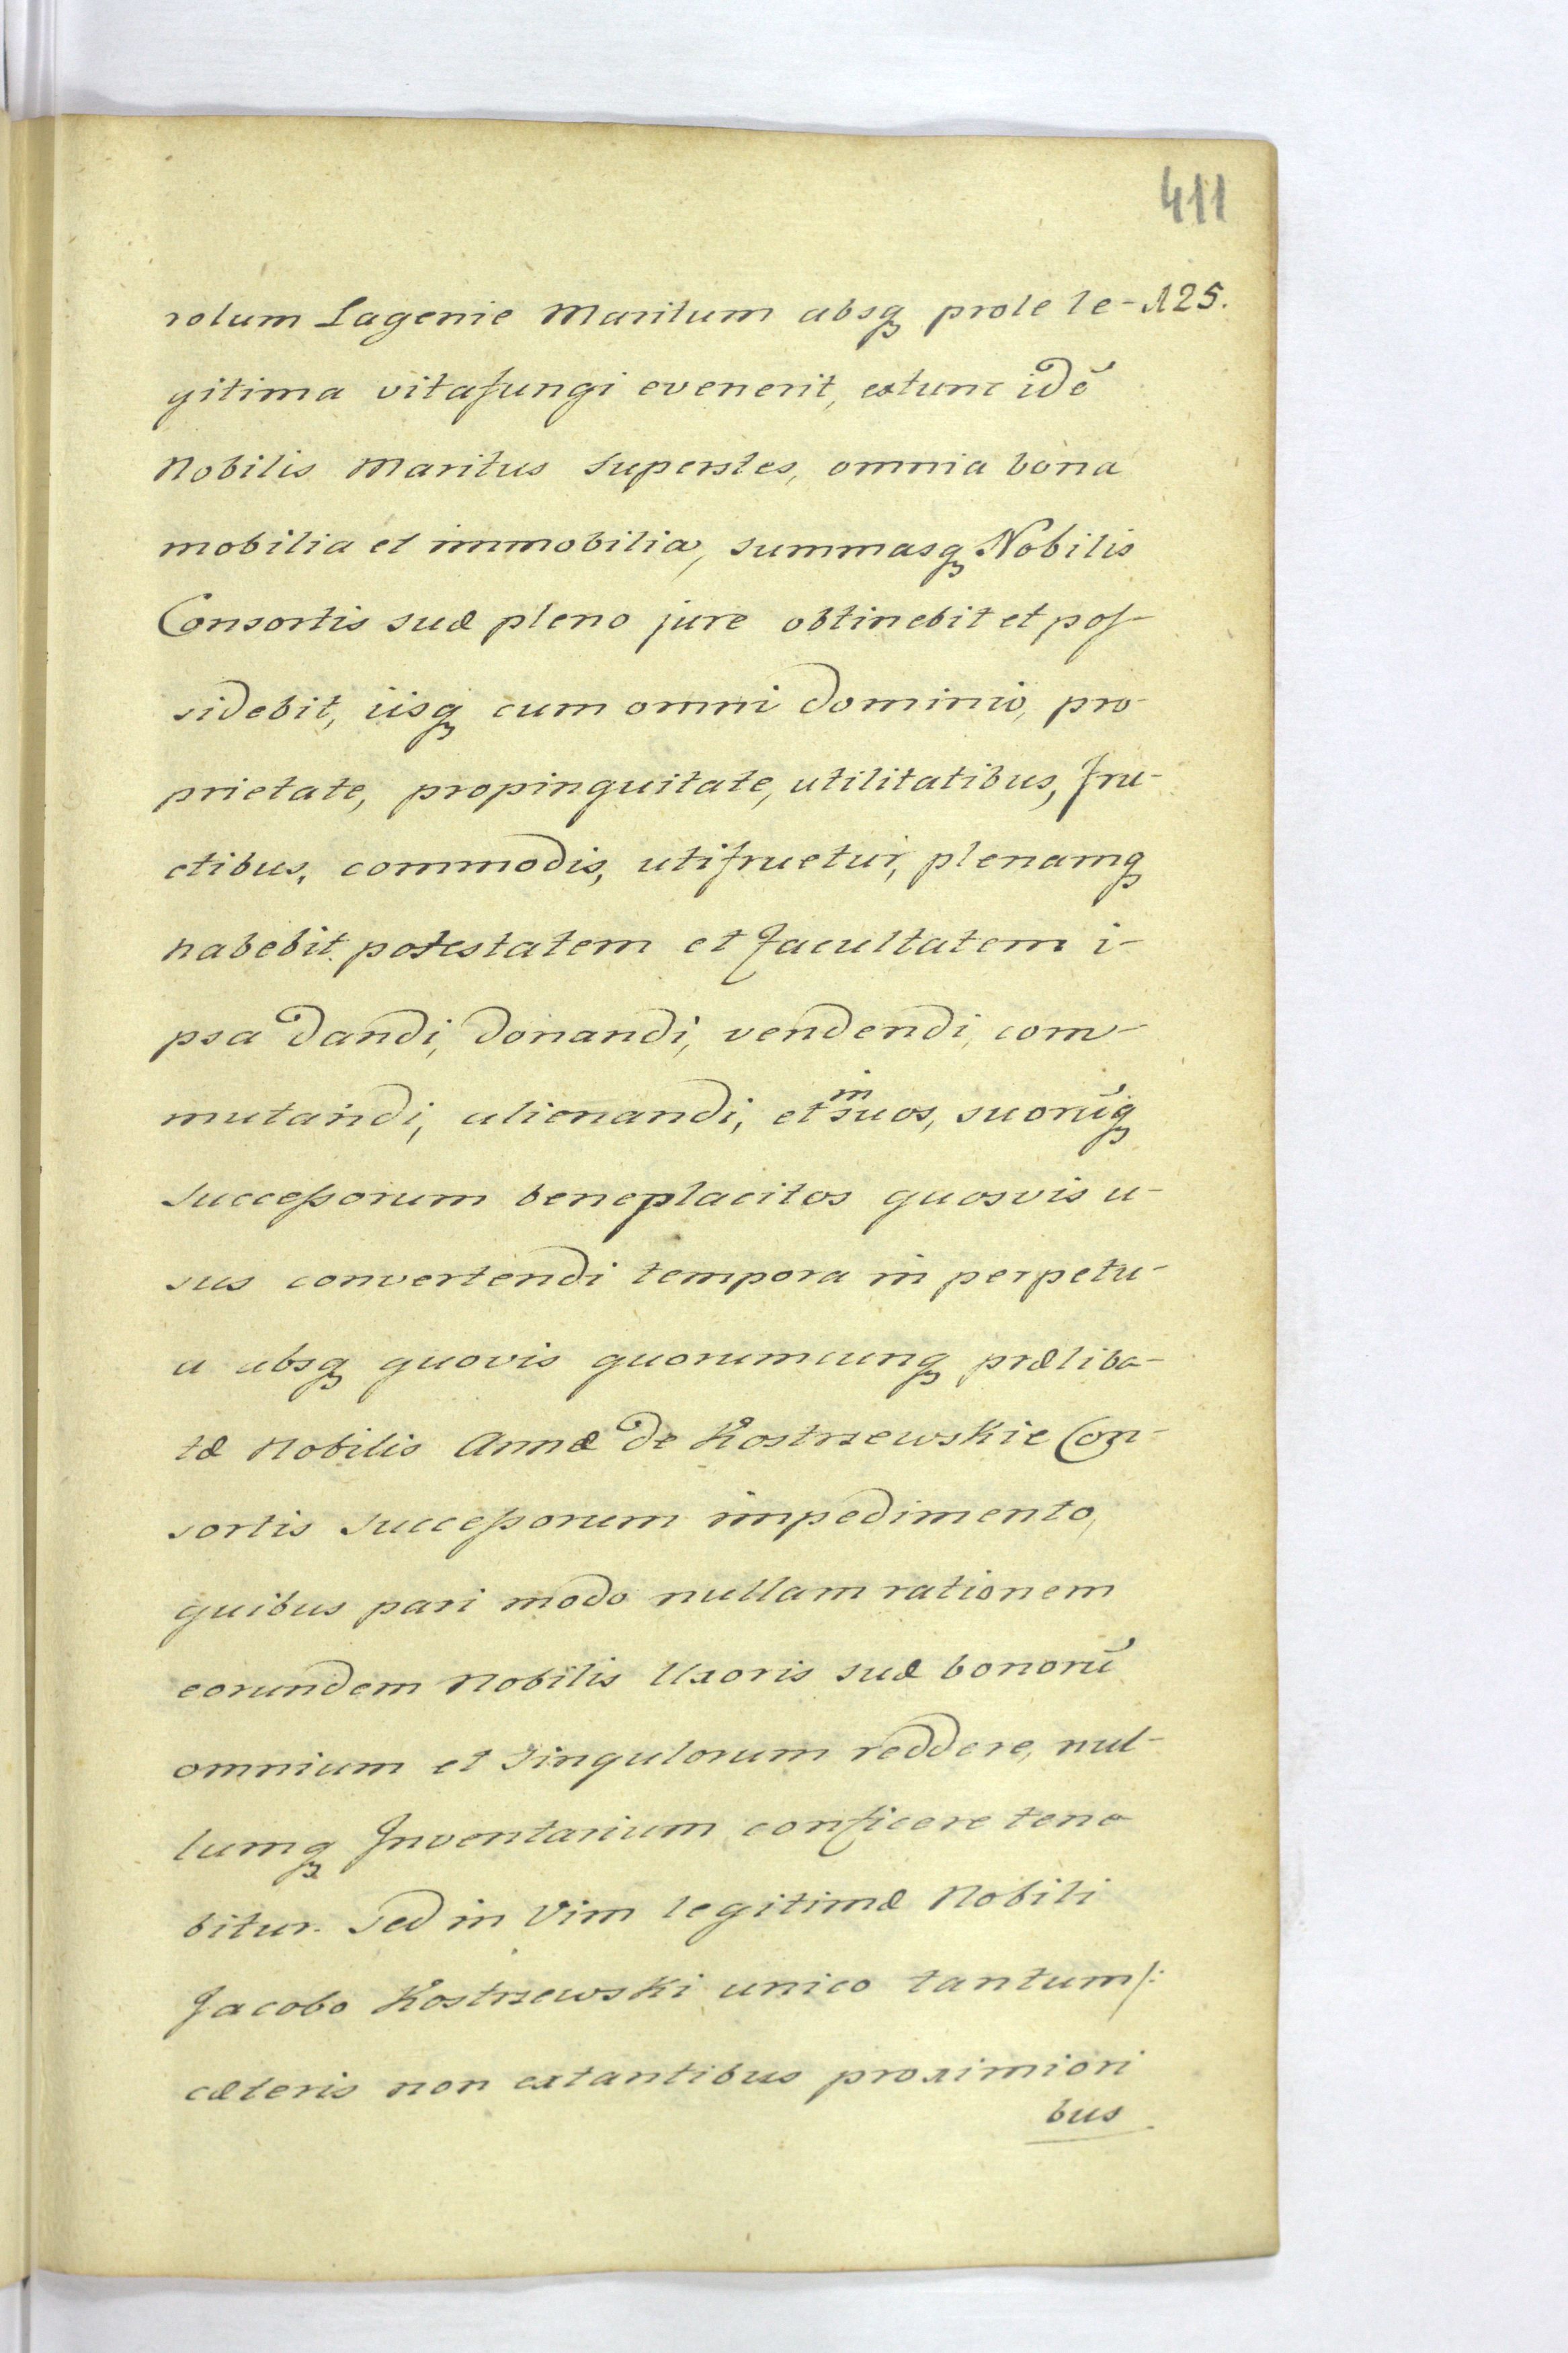 411
rolum Lagenie Maritum absq́ prole le- 125.
gitima vitafungi evenerit, extunc idē
Nobilis Maritus superstes, omnia bona
mobilia et immobilia, summasq́ Nobilis
Consortis suæ pleno jure obtinebit et pos-
sidebit, iisq́ cum omni dominio, pro-
prietate, propinquitate, utilitatibus, fru-
ctibus, commodis, utifruetur, plenamq́
habebit potestatem et facultatem i-
psa dandi, donandi, vendendi, com-
mutandi, alienandi, et in suos, suorūq́
successorum beneplacitos quosvis u-
sus convertendi tempora in perpetu-
a absq́ quovis quorumcunq́ præliba-
tæ Nobilis Annæ de Kostrzewskie Con-
sortis successorum impedimento,
quibus pari modo nullam rationem
eorundem Nobilis Uxoris suæ bonorū
omnium et singulorum reddere, nul-
lumq́ Inventarium conficere tene-
bitur. Sed in Vim legitimæ Nobili
Jacobo Kostrzewski unico tantum /:
cæteris non extantibus proximiori
bus